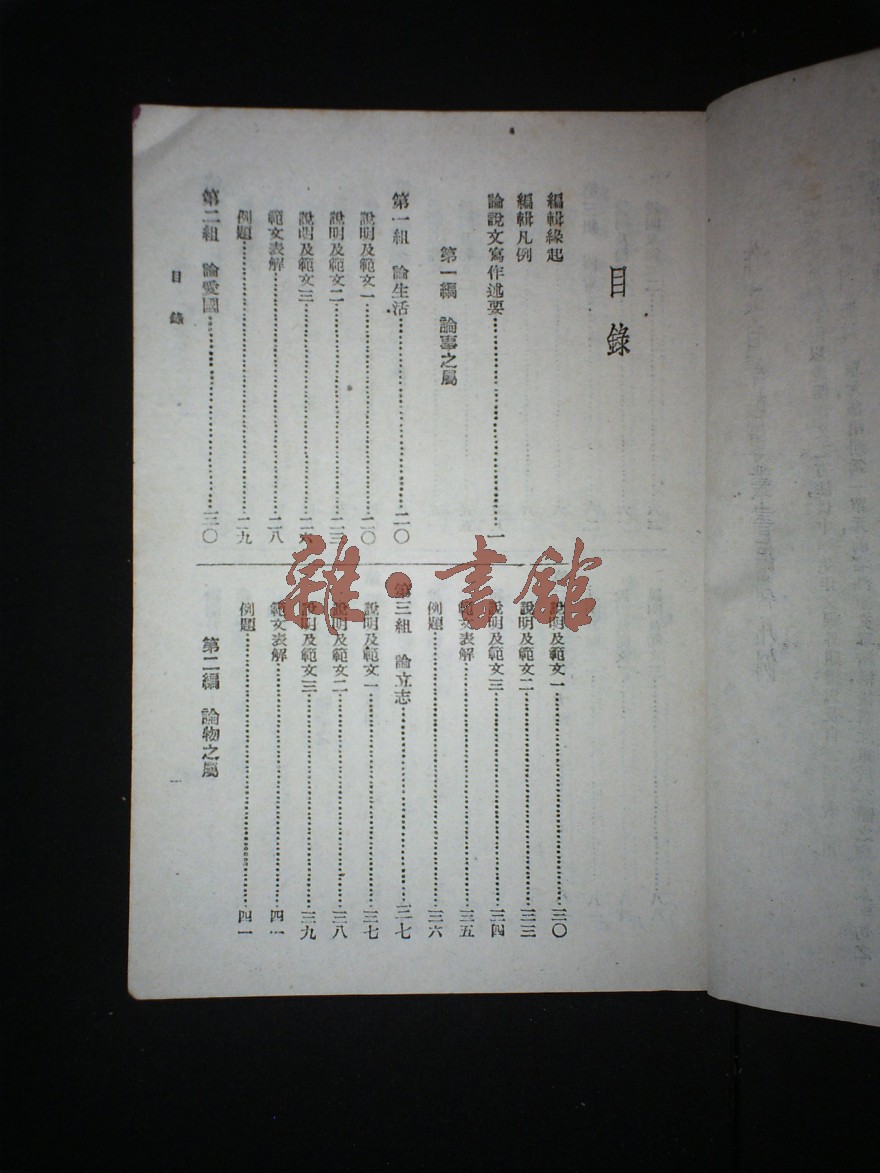 目錄
編輯緣起
編輯凡例
論說文寫作述要…………一
第一編 論事之屬
第一組 論生活…………二〇
說明及範文一…………二〇
說明及範文二…………二三
說明及範文三…………二六
範文表解…………二八
例題…………二九
第二組 論愛國…………三〇
說明及範文一…………三〇
說明及範文二…………三三
說明及範文三…………三四
範文表解…………三五
例題…………三六
第三組 論立志…………三七
說明及範文一…………三七
說明及範文二…………三八
說明及範文三…………三九
範文表解…………四一
例題…………四一
第二編 論物之屬
目錄
一
雜·書館